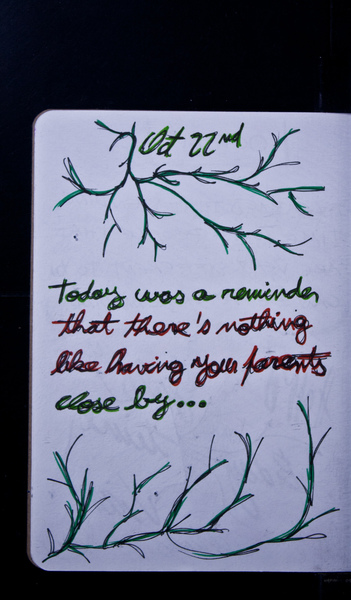 Oct 22nd
Today was a reminder
that there's nothing
like having your parents
close by...